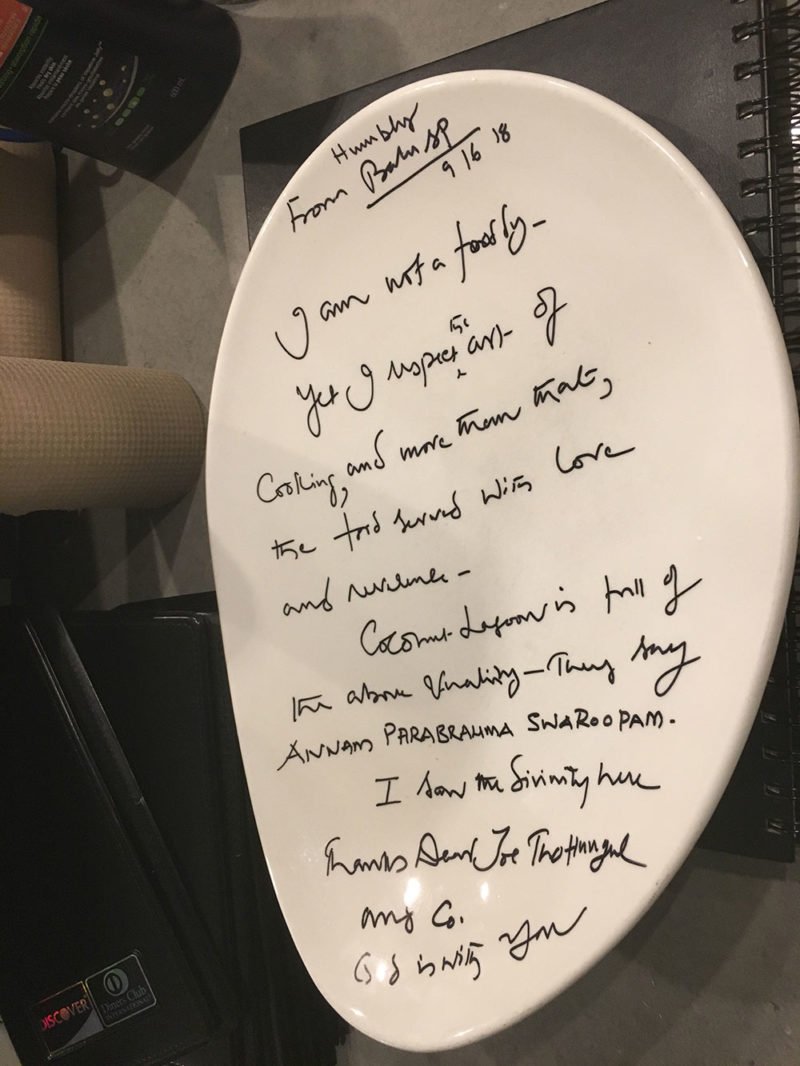 Humbly
From Balu SP
9 16 18
I am not a foody-
Yet I respect the art of
Cooking, and more than that,
the food served with Love
and reverence-
Coconut Lagoon is full of
the above Quality-They say
ANNAM PARABRAHMA SWAROOPAM.
I saw the divinity here
Thanks Dear Joe Thottungal
and Co.
God is with You
DISCOVER
Diners Club
INTERNATIONAL